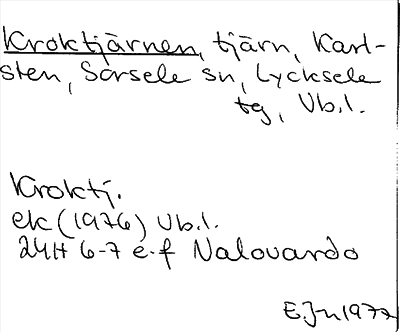 Kroktjärnen, tjärn, Karl-
sten, Sorsele sn, Lycksele
tg, Vb.l.
Kroktj.
ek (1976) Vb.l.
24H 6-7 e-f Nalovardo
E.Jn 1977